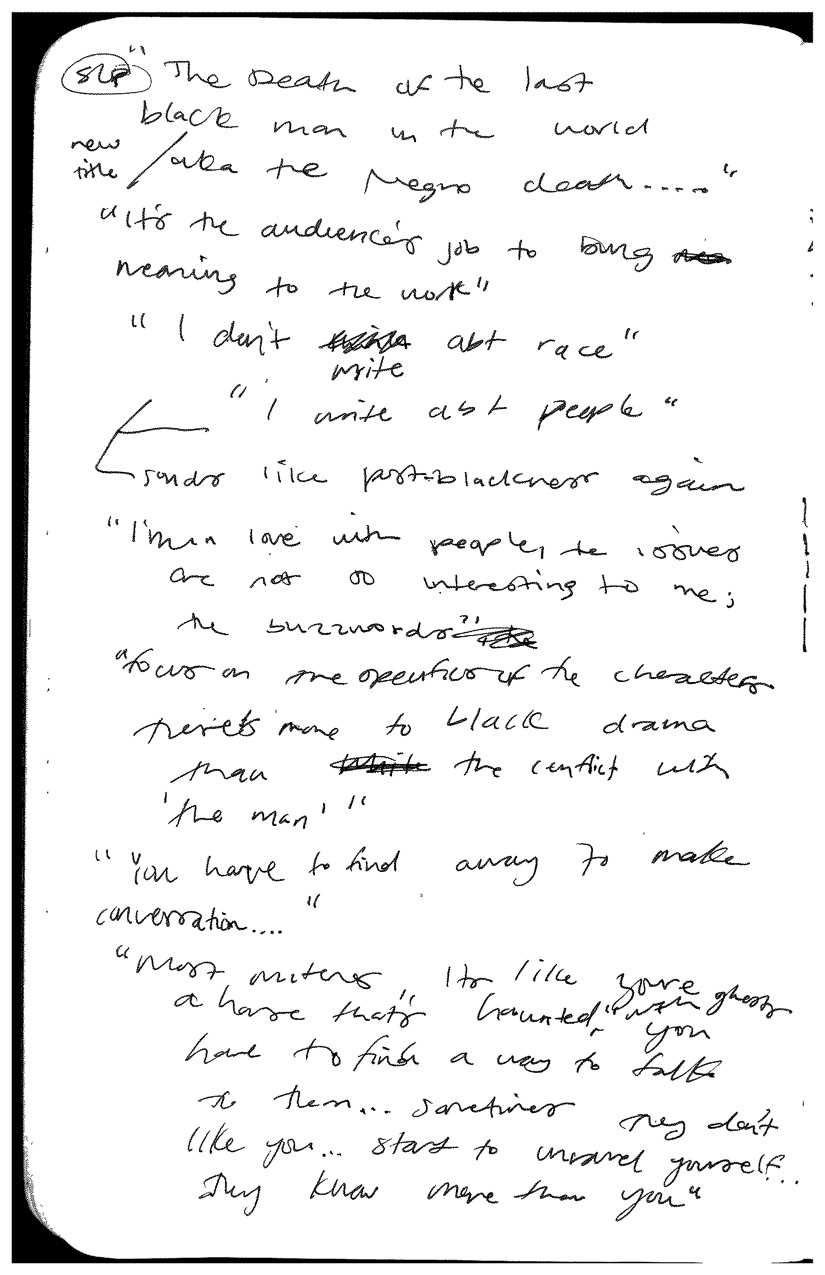 SLP "The Death of the last
black man in the world
new title / aka the Negro death....."
"It's the audience's job to bring
meaning to the work"
"I don't write abt race"
"I write abt people"
sounds like post-blackness again
"I'm in love with people, the issues
are not so interesting to me;
the buzzwords"
"focus on the specifics of the characters
there's more to black drama
than the conflict with
'the man'"
"You have to find a way to make
conversation...."
"Most writers, It's like you're
a house that's "haunted" with ghosts
you
have to find a way to talk
to them... sometimes they don't
like you... start to unravel yourself...
They know more than you"